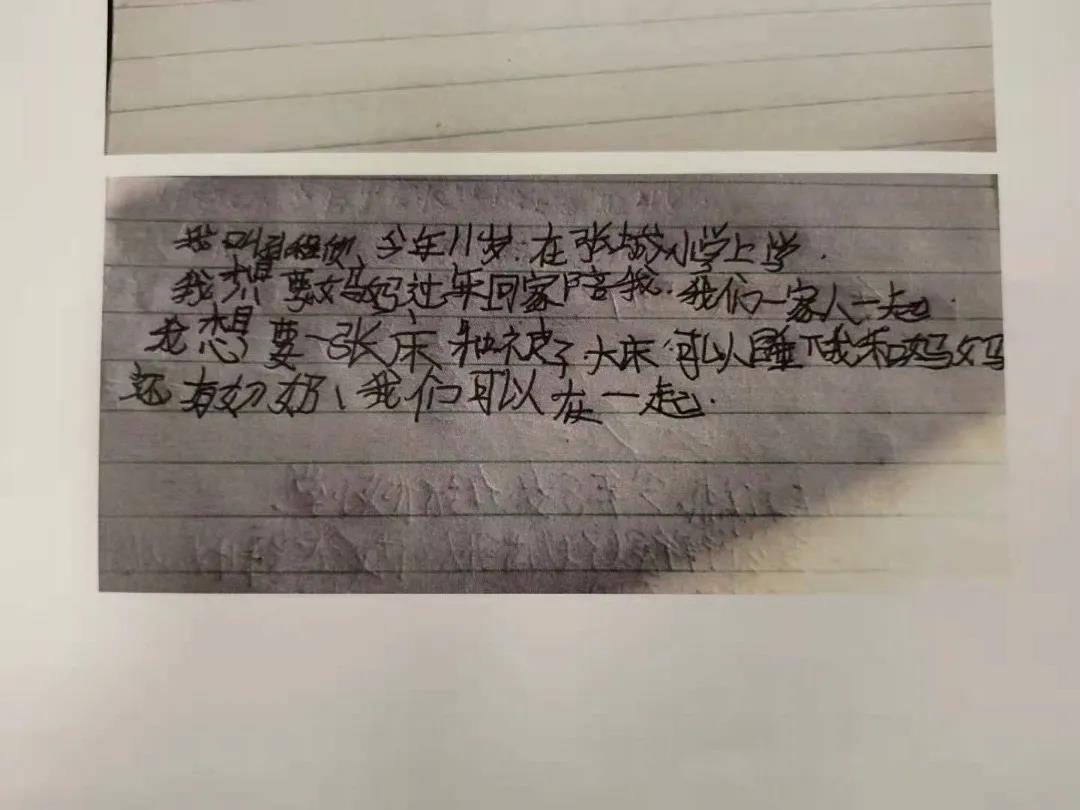 我叫 今年11岁.在张城小学上学.
我想要妈妈过年回家陪我.我们一家人一起.
我想要一张床和被子.大床.可以睡下我和妈妈
还有奶奶、我们可以在一起.